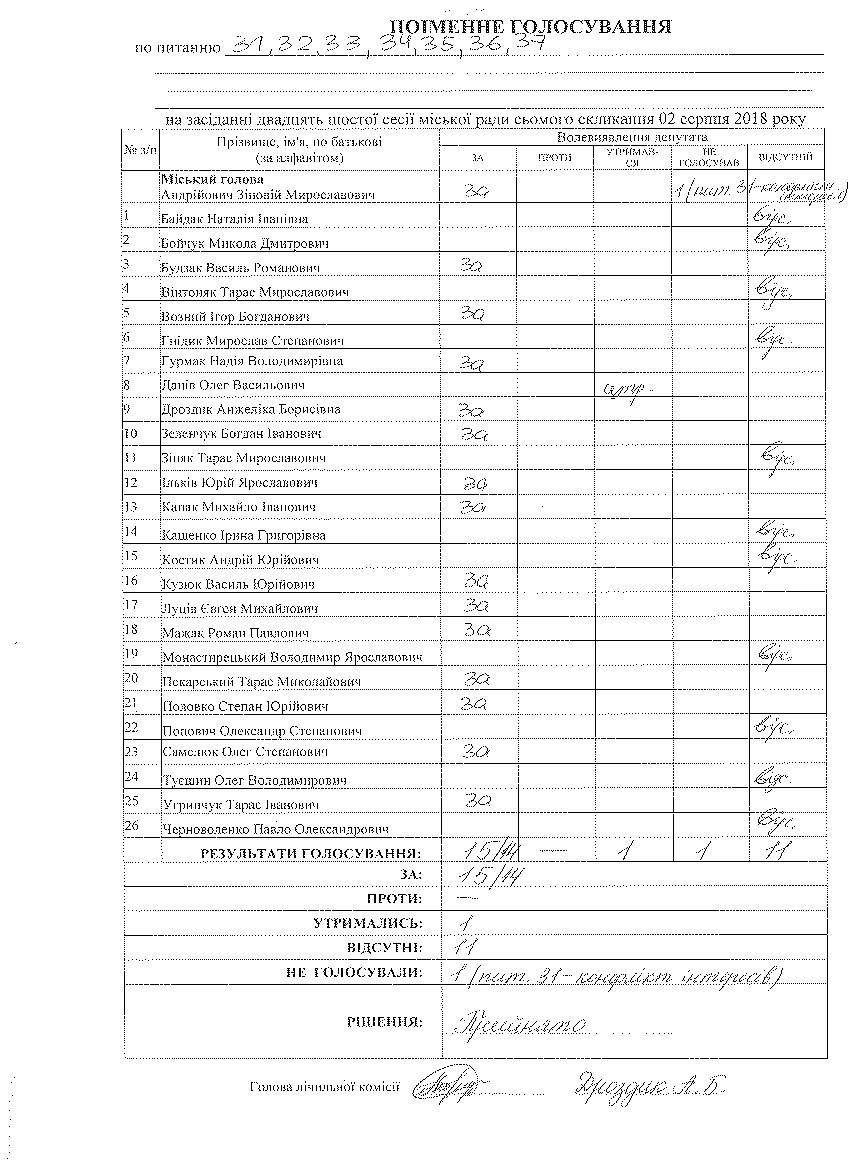 ПОІМЕННЕ ГОЛОСУВАННЯ
по питанню 31,32,33,34,35,36,37
на засіданні двадцять шостої сесії міської ради сьомого скликання 02 серпня 2018 року
№ з/п Прізвище, ім'я, по батькові (за алфавітом) Волевиявлення депутата
ЗА ПРОТИ УТРИМАВ-СЯ НЕ ГОЛОСУВАВ ВІДСУТНІЙ
Міський голова
Андрійович Зіновій Мирославович За 1 (пит. 31-конфлікт інтересів)
1 Байдак Наталія Іванівна Відс.
2 Бойчук Микола Дмитрович Відс.
3 Будзак Василь Романович За
4 Вінтоняк Тарас Мирославович Відс.
5 Возний Ігор Богданович За
6 Гнідик Мирослав Степанович Відс.
7 Гурмак Надія Володимирівна За
8 Даців Олег Васильович утр.
9 Дроздик Анжеліка Борисівна За
10 Зеленчук Богдан Іванович За
11 Зіняк Тарас Мирославович Відс.
12 Ільків Юрій Ярославович За
13 Капак Михайло Іванович За
14 Кащенко Ірина Григорівна Відс.
15 Костик Андрій Юрійович Відс.
16 Кузюк Василь Юрійович За
17 Луців Євген Михайлович За
18 Мажак Роман Павлович За
19 Монастирецький Володимир Ярославович Відс.
20 Пекарський Тарас Миколайович За
21 Половко Степан Юрійович За
22 Попович Олександр Степанович Відс.
23 Саменюк Олег Степанович За
24 Туєшин Олег Володимирович Відс.
25 Угринчук Тарас Іванович За
26 Черноволенко Павло Олександрович Відс.
РЕЗУЛЬТАТИ ГОЛОСУВАННЯ: 15/14 — 1 1 11
ЗА: 15/14
ПРОТИ: —
УТРИМАЛИСЬ: 1
ВІДСУТНІ: 11
НЕ ГОЛОСУВАЛИ: 1 (пит. 31-конфлікт інтересів)
РІШЕННЯ: Прийнято
Голова лічильної комісії Дроздик А. Б.